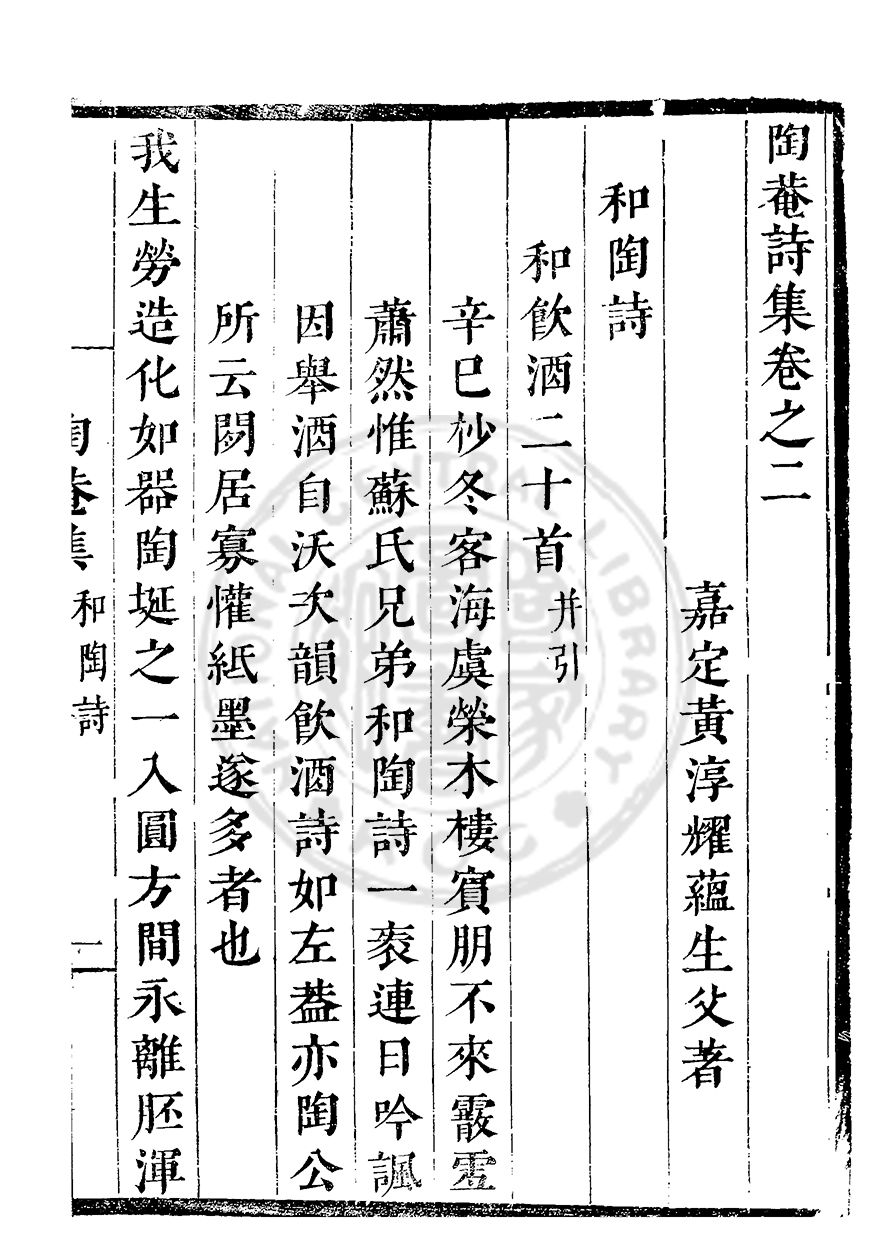 陶菴詩集卷之二
嘉定黃淳耀蘊生父著
和陶詩
和飮酒二十首并引
辛巳杪冬客海虞榮木樓賓朋不來霰雪
蕭然惟蘇氏兄弟和陶詩一袠連日吟諷
因舉酒自沃次韻飮酒詩如左葢亦陶公
所云閒居寡懽紙墨遂多者也
我生勞造化如器陶埏之一入圓方間永離胚渾
陶菴集 和陶詩 一
NATIONAL CENTRAL LIBRARY